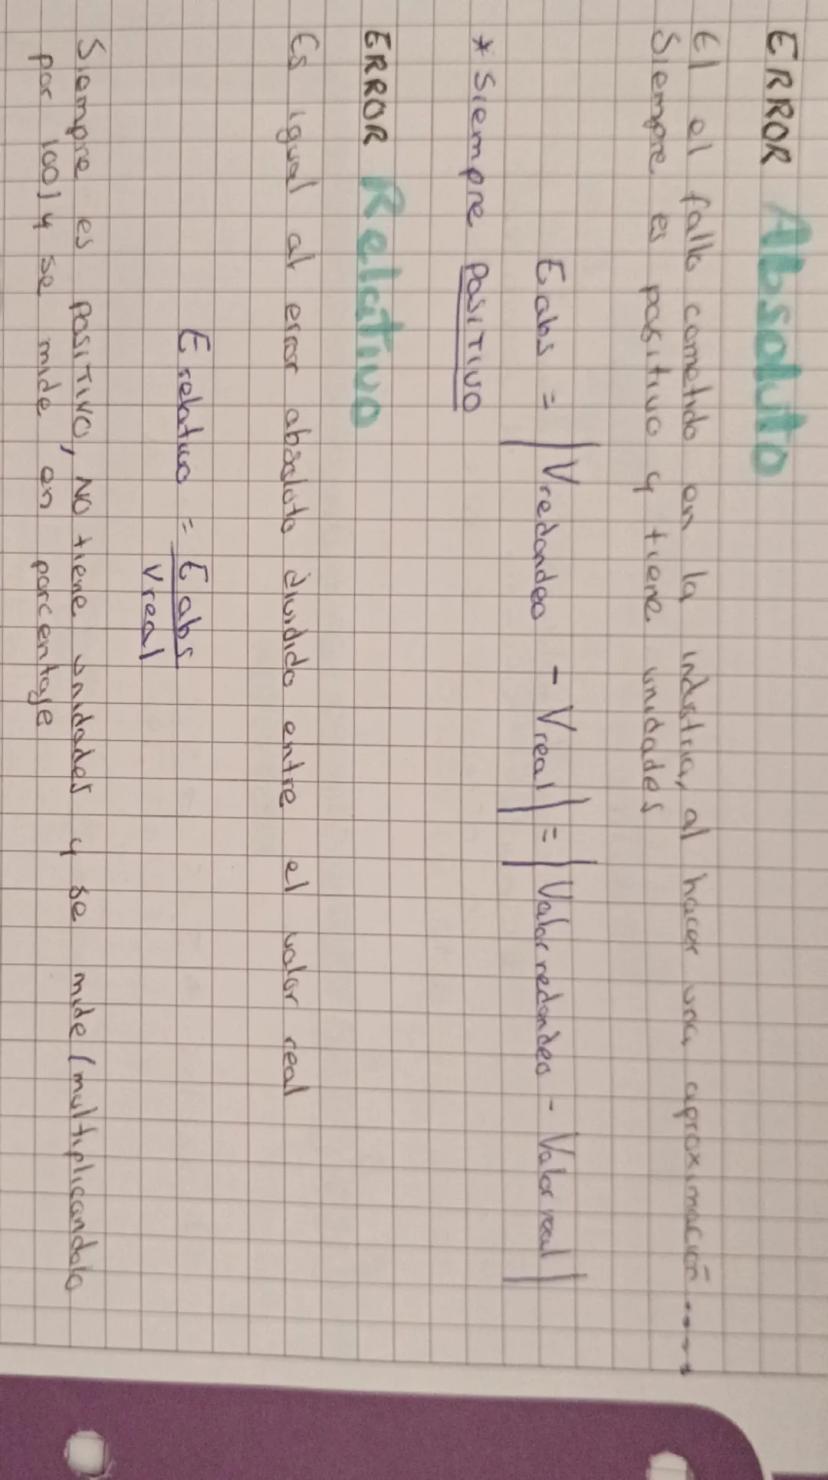 ERROR Absoluto
El el fallo cometido en la industria, al hacer una aproximación.....
Siempre es positivo y tiene unidades
E abs = |V redondeo - V real| = |Valor redondeo - Valor real|
* Siempre POSITIVO
ERROR Relativo
Es igual al error absoluto dividido entre el valor real
E relativo = E abs
V real
Siempre es POSITIVO, NO tiene unidades y se mide (multiplicandolo
por 100) y se mide en porcentaje